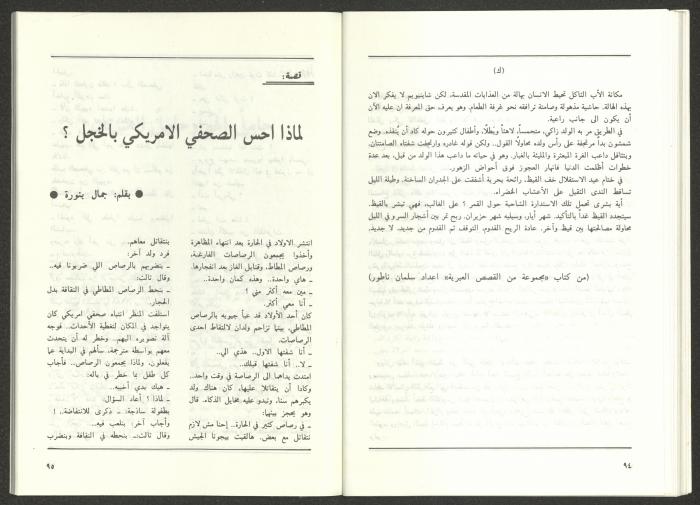 (ك)
مكانة الأب الثاكل تحيط الانسان بهالة من العذابات المقدسة. لكن شاينبويم لا يفكر الان
بهذه الهالة. حاشية مذهولة وصامتة ترافقه نحو غرفة الطعام. وهو يعرف حق المعرفة ان عليه الآن
أن يكون الى جانب راعية.
في الطريق مر به الولد زاكي، متحمساً، لاهثاً وبطلاً، وأطفال كثيرون حوله كاد أن يُنقذه. وضع
شمشون يداً مرتجفة على رأس ولده محاولا القول.. ولكن قوله غادره وارتجفت شفتاه الصامتتان.
وبتثاقل داعب الغرة المبعثرة والمليئة بالغبار. وهو في حياته ما داعب هذا الولد من قبل. بعد عدة
خطوات أظلمت الدنيا فانهار العجوز فوق أحواض الزهور.
في ختام عيد الاستقلال خف القيظ. رائحة بحرية أشفقت على الجدران الساخنة. وطيلة الليل
تساقط الندى الثقيل على الأعشاب الخضراء.
أية بشرى تحمل تلك الاستدارة الشاحبة حول القمر؟ على الغالب، فهي تبشر بالقيظ.
سيتجدد القيظ غداً بالتأكيد. شهر أيار، وسيليه شهر حزيران. ريح تمر بين أشجار السرو في الليل
محاولة مصالحتها بين قيظ وآخر. عادة الريح القدوم، التوقف ثم القدوم من جديد. لا جديد.
(من كتاب «مجموعة من القصص العبرية» اعداد سلمان ناطور)
٩٤
قصة:
لماذا احس الصحفي الامريكي بالخجل ؟
● بقلم: جمال بنورة ●
انتشر الاولاد في الحارة بعد انتهاء المظاهرة
وأخذوا يجمعون الرصاصات الفارغة،
ورصاص المطاط، وقنابل الغاز بعد انفجارها.
ـ هاي واحدة.. وهذه كمان واحدة..
ـ مين معه أكثر مني ؟
ـ أنا معي أكثر.
كان أحد الأولاد قد عبأ جيوبه بالرصاص
المطاطي، بينما تزاحم ولدان لالتقاط احدى
الرصاصات.
ـ أنا شفتها الاول.. هذي الي..
ـ لا.. أنا شفتها قبلك..
امتدت يداهما الى الرصاصة في وقت واحد..
وكادا أن يتقاتلا عليها. كان هناك ولد
يكبرهم سناً، وتبدو عليه مخايل الذكاء. قال
وهو يحجز بينهما:
ـ في رصاص كثير في الحارة.. إحنا مش لازم
نتقاتل مع بعض. هالقيت بيجونا الجيش
بنتقاتل معاهم.
فرد ولد آخر:
ـ بنضربهم بالرصاص اللي ضربونا فيه..
وقال ثالث:
ـ بنحط الرصاص المطاطي في النقافة بدل
الحجار.
استلفت المنظر انتباه صحفي امريكي كان
يتواجد في المكان لتغطية الأحداث.. فوجه
آلة تصويره اليهم.. وخطر له أن يتحدث
معهم بواسطة مترجمة. سألهم في البداية عما
يفعلون، ولماذا يجمعون الرصاص.. فأجاب
كل طفل بما خطر في باله:
ـ هيك بدي أخبيه..
ـ لماذا ؟ أعاد السؤال.
بطفولة ساذجة: ـ ذكرى للانتفاضة.. !
وأجاب آخر: بنلعب فيه..
وقال ثالث:ـ بنحطه في النقافة وبنضرب
٩٥